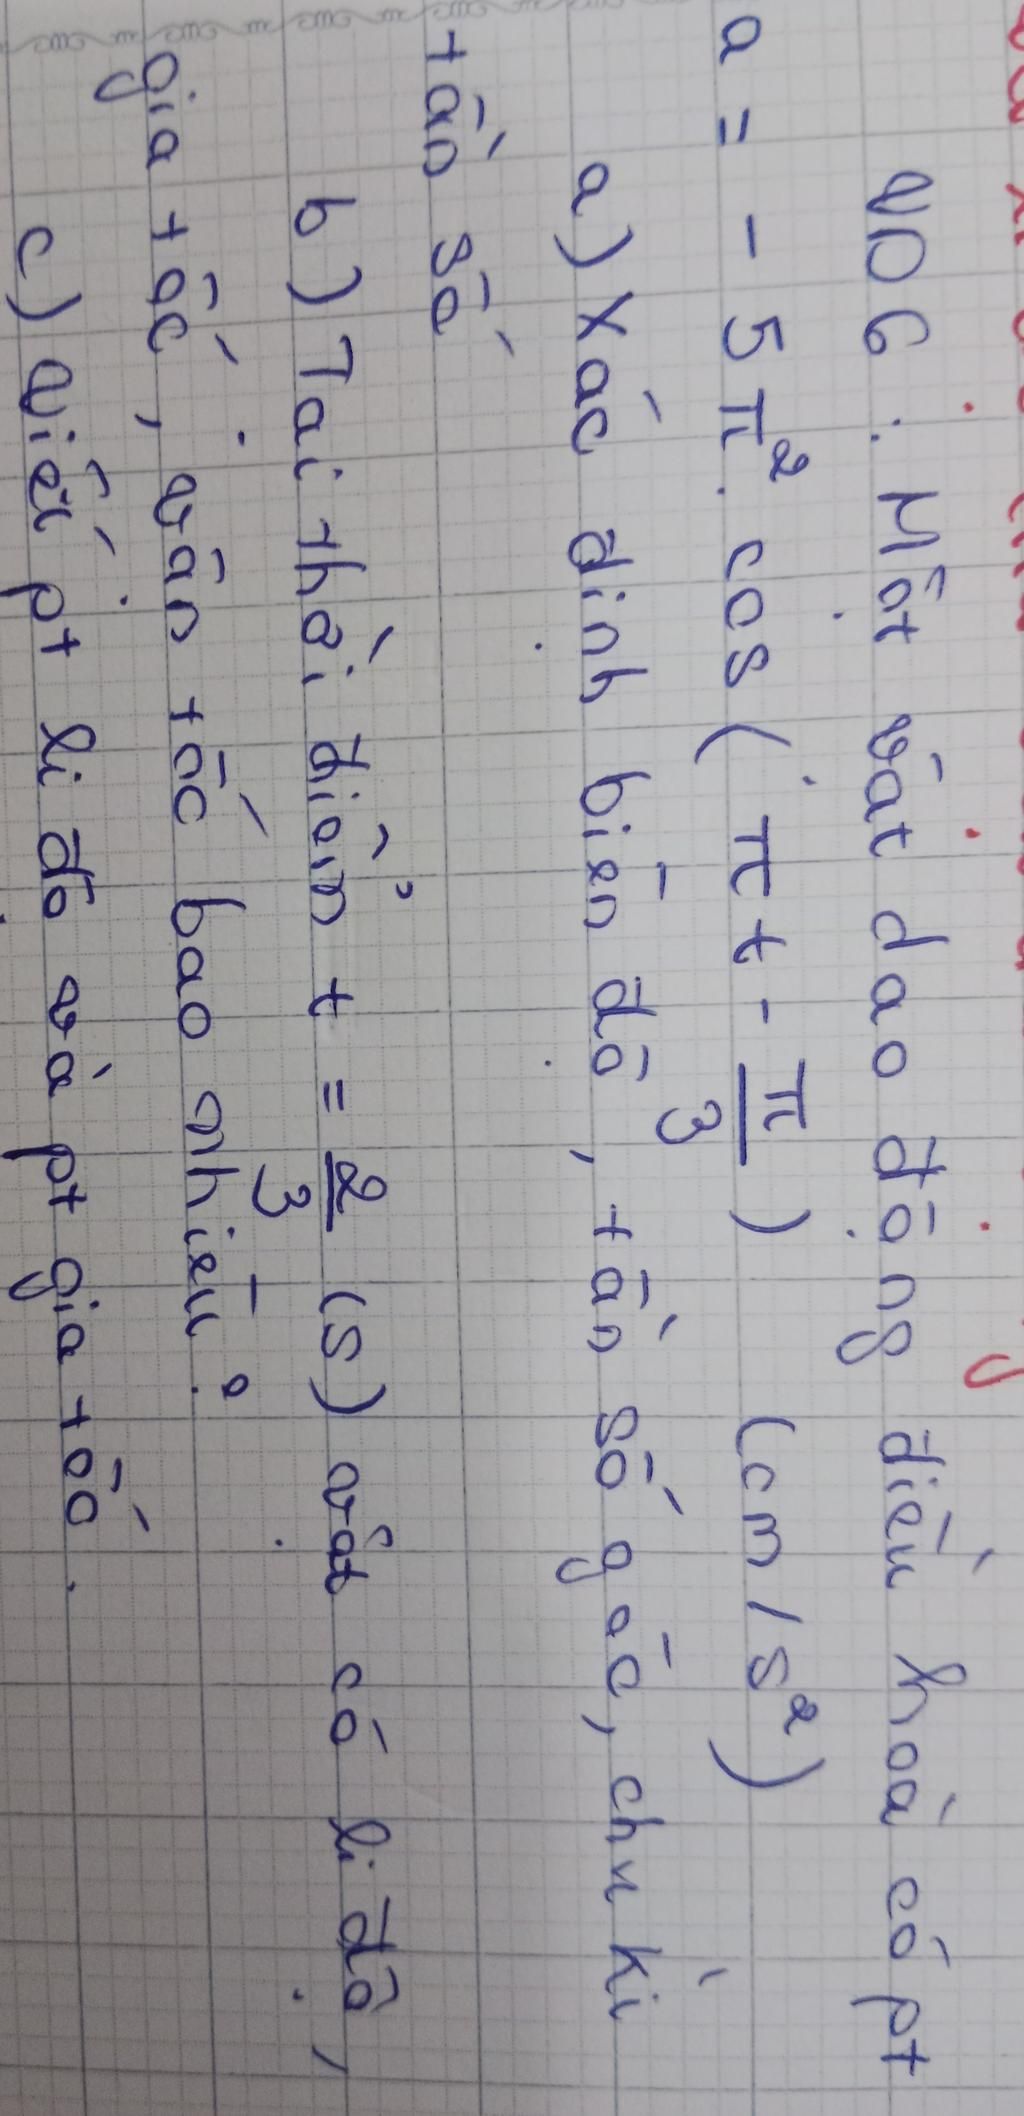 VD6 : Một vật dao động điều hoà có pt
a = - 5π². cos ( πt - π/3 ) (cm/s²)
a) Xác định biên độ, tần số góc, chu kì
tần số
b) Tại thời điểm t = 2/3 (s) vật có li độ,
gia tốc, vận tốc bao nhiêu ?
c) Viết pt li độ và pt gia tốc.